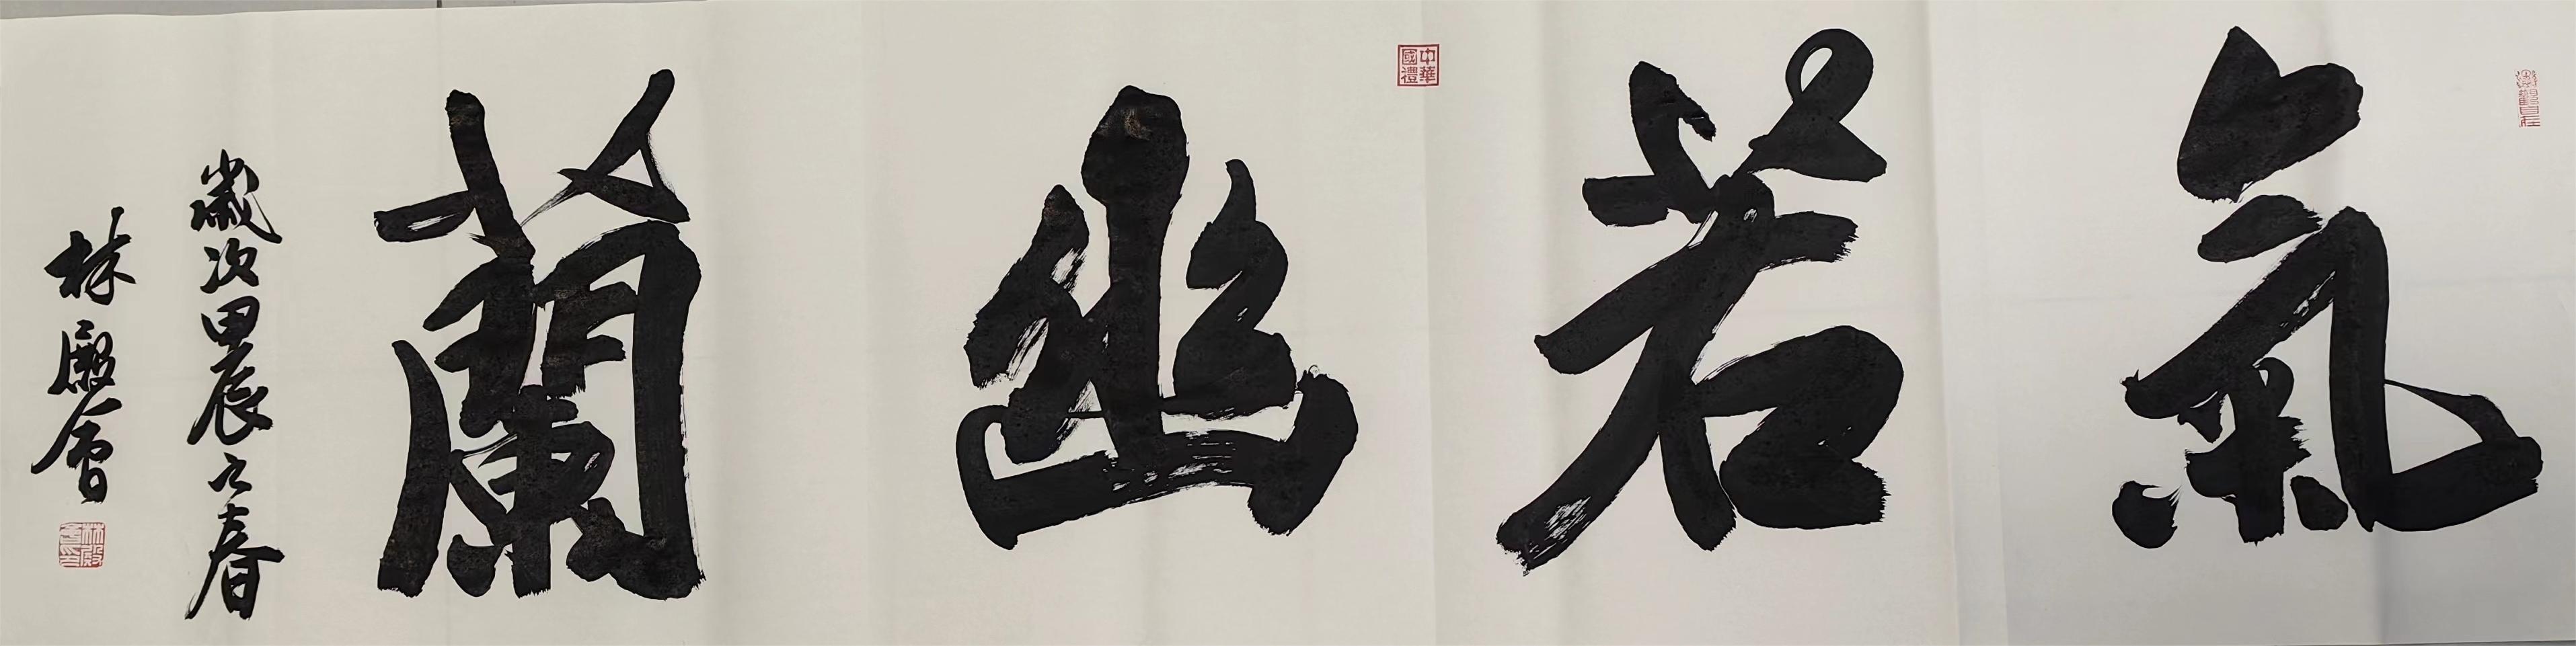 氣若幽蘭
歲次甲辰之春
林殿會
中華國禮